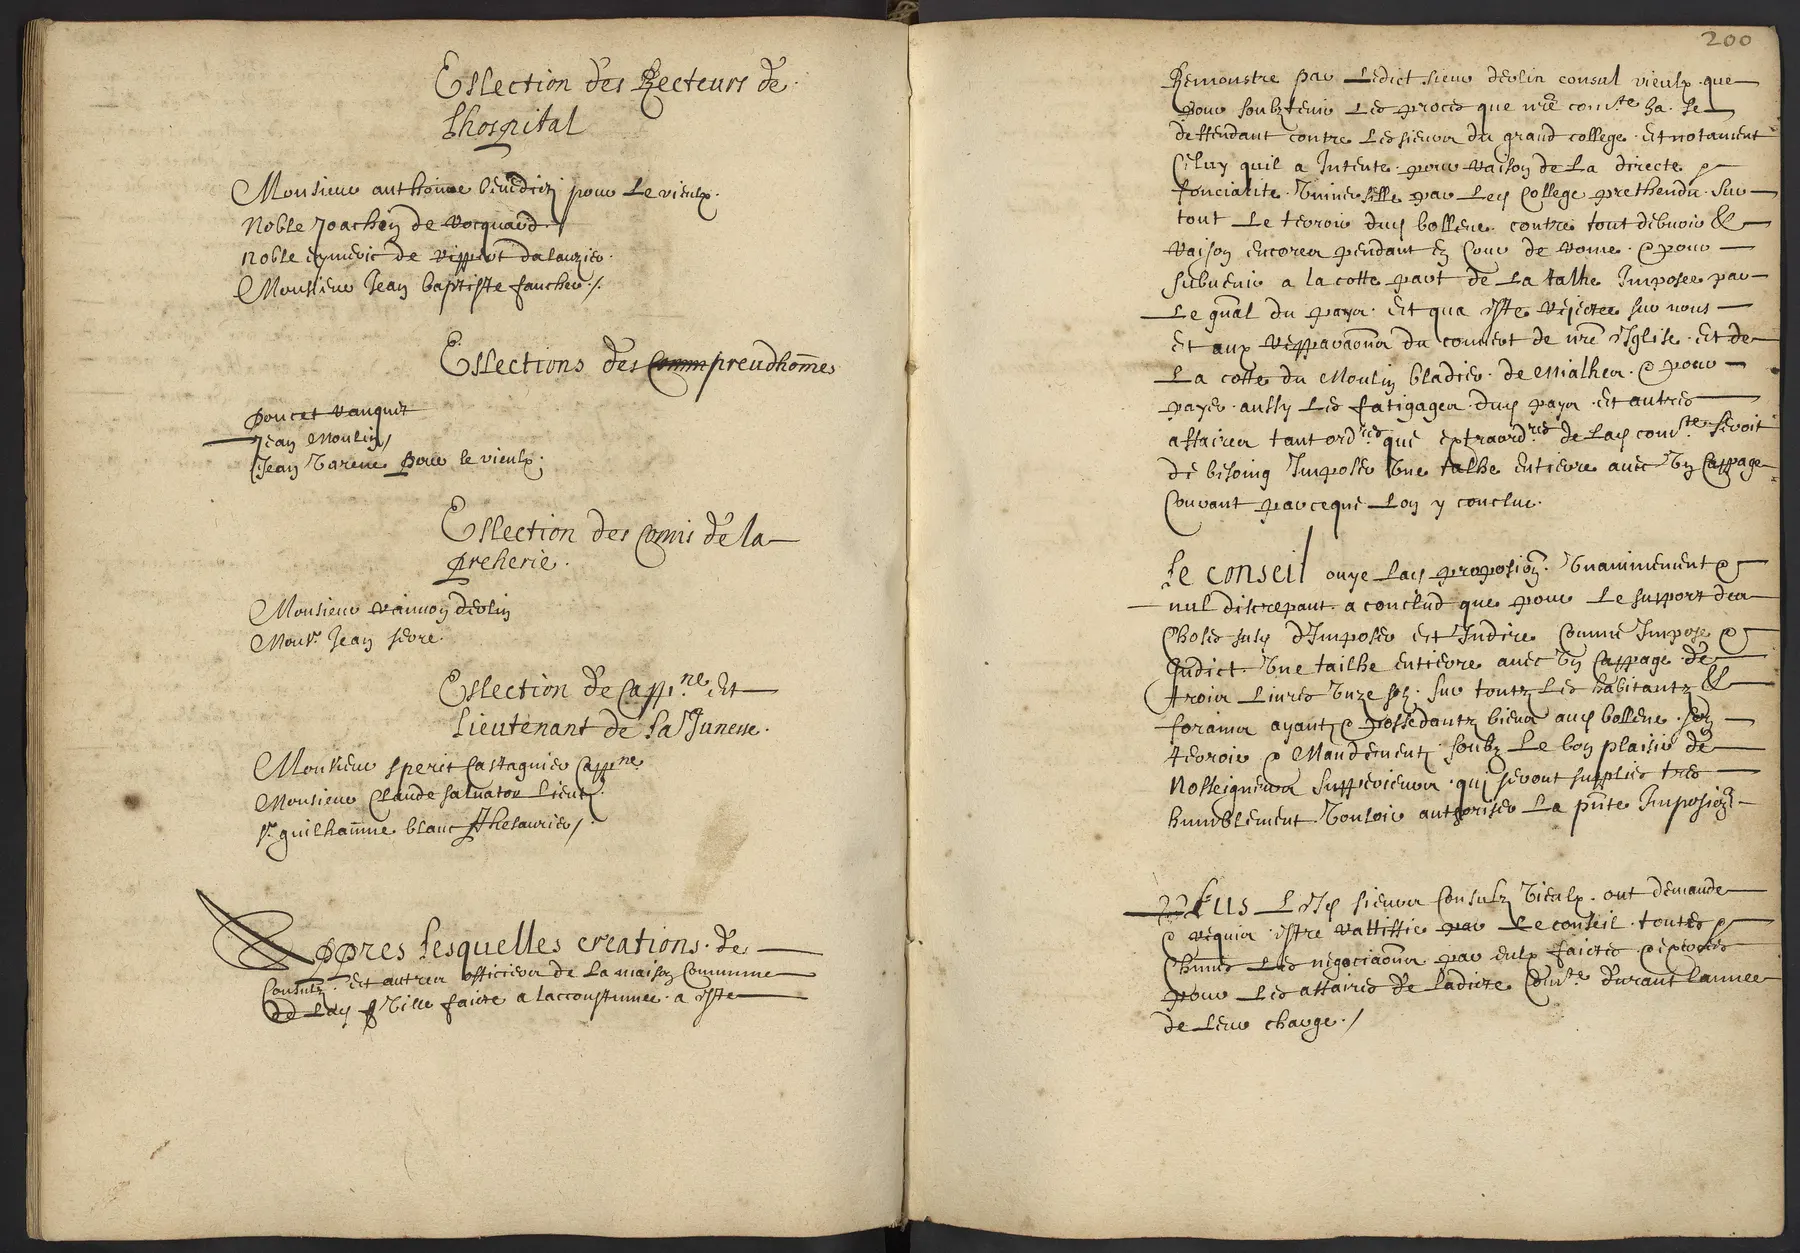 Ellection des Recteurs de
Lhospital
Monsieur anthoine benedicti pour Le vieulx.
Noble Joachin de Rocquard.
noble eymeric de Rippert dalauzier.
Monsieur Jean baptiste faucher./.
Ellections des Comm preudhom̃es
poncet Vanquet
Jean Moulin/
Jean Varene pour le vieulx.
Ellection des Comis de la
precherie.
Monsieur Raimon deolin
Monsr. Jean febre.
Ellection de Cappne. Et
Lieutenant de La Junesse.
Monsieur sperit Castagnier Cappne.
Monsieur Claude salvator Lient.
sr. guilhaũme blanc Thesaurier/.
Appres lesquelles creations. de
Consulz. Et autres officiers de La maison Commune
de Lad ville faicte a laccoustumee. a este
200
Remonstre par Ledict sieur deolin consul vieulx que
pour soubztenir Les proces que nr̃e comte ha. se
deffendant contre Les sieurs du grand college. Et notament
Celuy quil a Intente. pour Raison de La directe
fonciarite. Universelle par Led College prethendu. sur
tout Le terroir dud bollene. contre tout debvoir &
Raison encores pendant en Cour de Rome. & pour
subvenir a la cotte part de La talhe Imposee par
Le gñal du pays. Et qua este Rejectee sur nous
Et aux Repparaõns du couvert de nr̃e Esglise. Et de
La cotte du Moulin bladier. de Mialhes. & pour
payer. aussy Les fatigages. dud pays. Et autres
affaires tant ordres que extraordres de Lad comte. seroit
de besoing Imposer Une talhe entiere avec Un Cappage
Courant parceque Lon y conclue.
Le conseil ouye Lad proposion. Unanimement &
nul discrepant. a conclud que pour Le support des
Choses susd d'Imposer Et Indire Comme Impose &
Indict. Une tailhe entiere avec Un Cappage de
trois Livres Unze solz. sur toutz Les habitantz &
forains ayantz & possedantz biens aud bollene. son
terroir & Mandement. soubz Le bon plaisir de
Nosseigneurs supperieurs. qui seront supplies tres
humblement. Vouloir authoriser La pñte Imposion.
Plus Lesd sieurs Consulz Vieulx. ont demande
& Requis estre Rattiffie par Le conseil. toutes &
Chũnes Les negociaõns par eulx faictes & exercees
pour Les affaires de Ladicte Comte. durant lannee
de Leur charge./